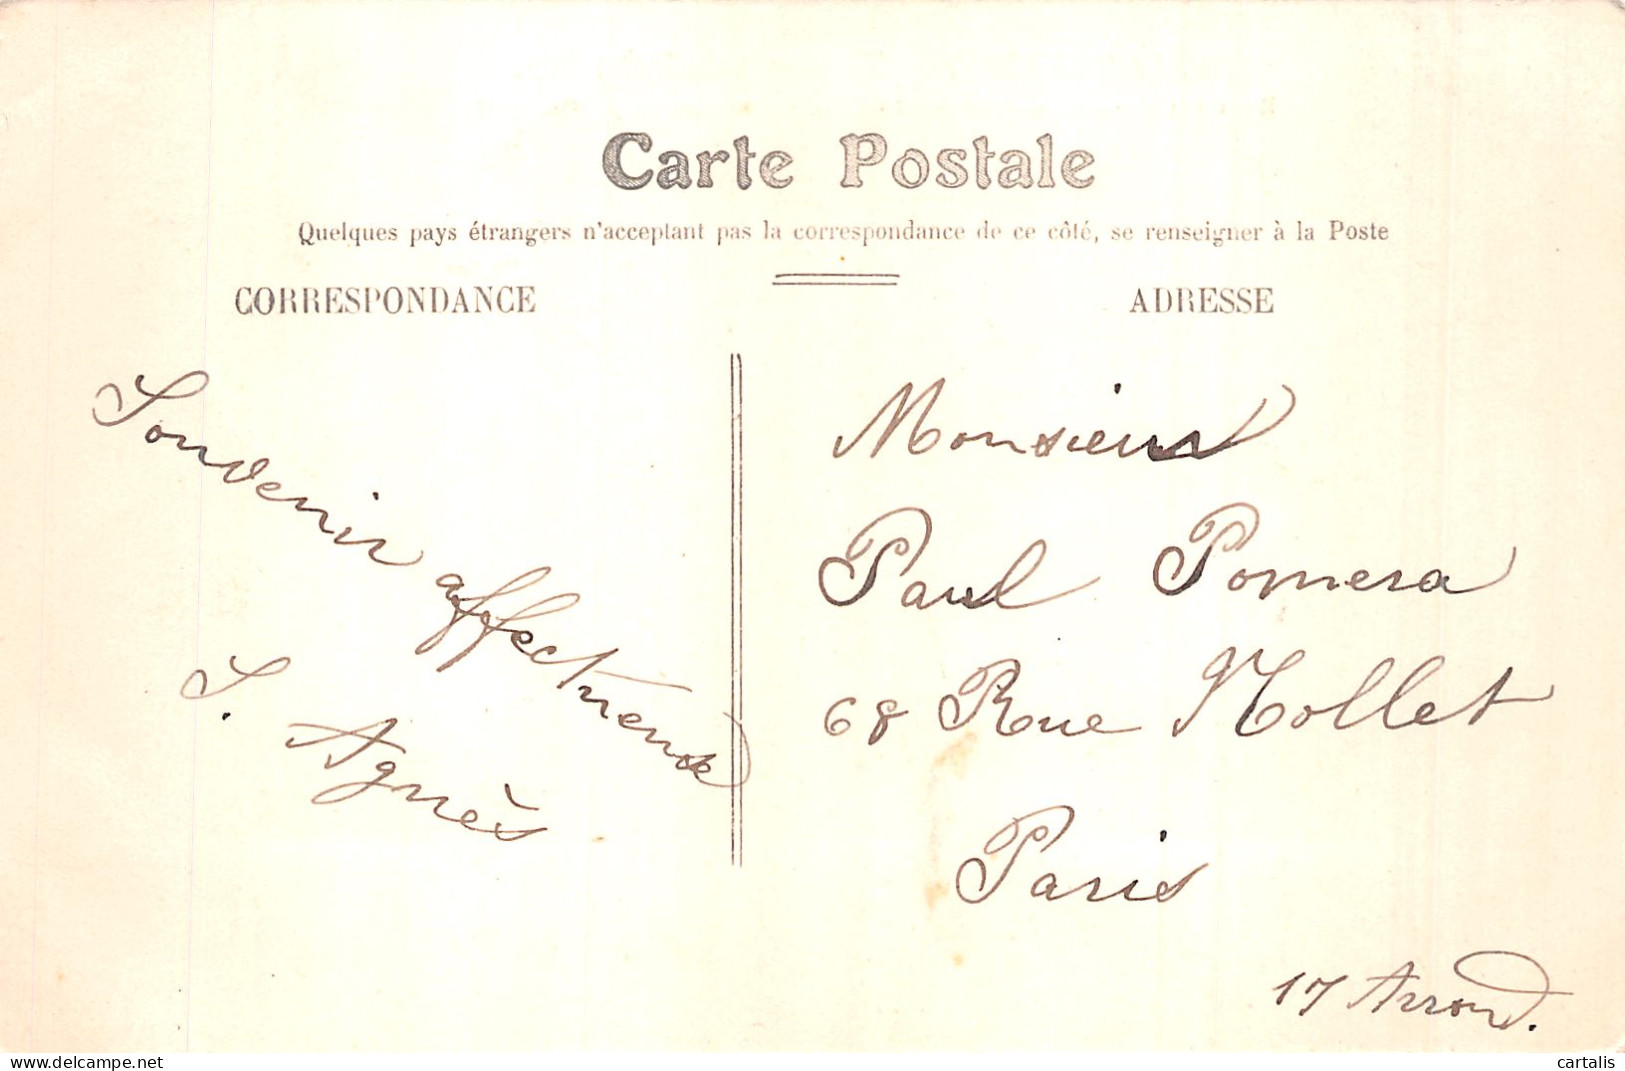 Carte Postale
Quelques pays étrangers n'acceptant pas la correspondance de ce côté, se renseigner à la Poste
CORRESPONDANCE
ADRESSE
Souvenir affectueux
S. Agnès
Monsieur
Paul Pomera
68 Rue Nollet
Paris
17 Arrond.
delcampe.net
cartalis